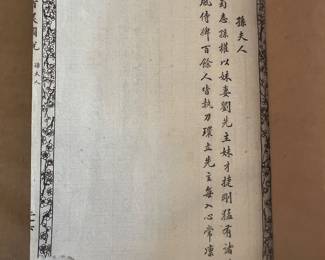 孫夫人
蜀志孫權以妹妻劉先主妹才捷剛猛有諸
風侍婢百餘人皆執刀環立先主每入心常凜
孫夫人